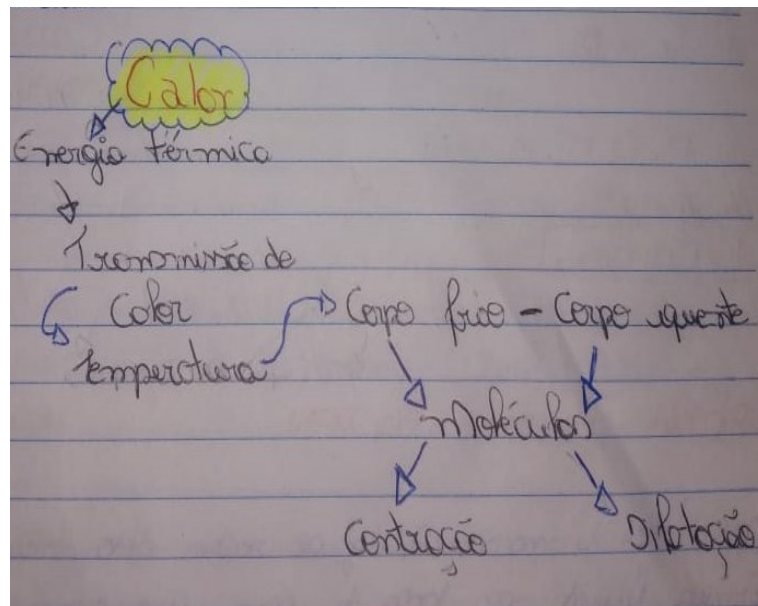 Calor
Energia térmica
Transmissão de
Calor
temperatura
Corpo frio - Corpo quente
Moléculas
Contração
Dilatação